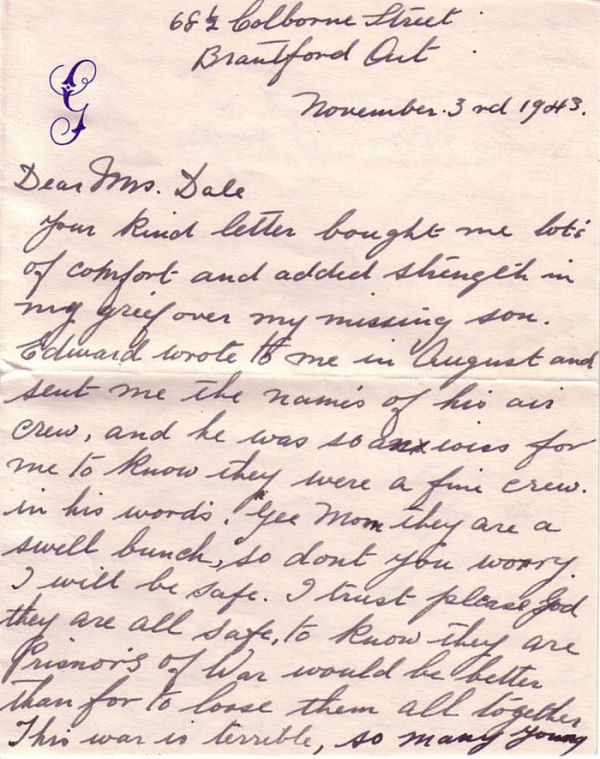 68½ Colborne Street
Brantford Ont
November. 3rd 1943.
G
Dear Mrs. Dale
Your kind letter bought me lots
of comfort and added strength in
my grief over my missing son.
Edward wrote to me in August and
sent me the names of his air
crew, and he was so anxious for
me to know they were a fine crew.
in his words. "Gee Mom they are a
swell bunch, so dont you worry
I will be safe. I trust please God
they are all safe, to know they are
Prisnors of War would be better
than for to loose them all together
This war is terrible, so many young